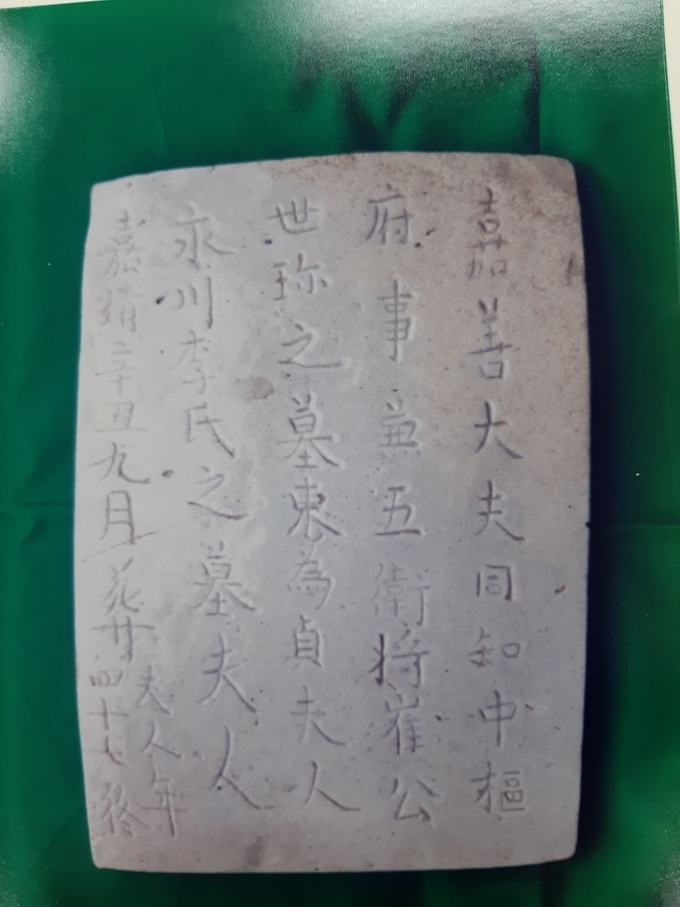 嘉善大夫同知中樞
府事兼五衛將崔公
世珎之墓東為貞夫人
永川李氏之墓夫人
嘉靖辛丑九月葬夫人年
四十七終